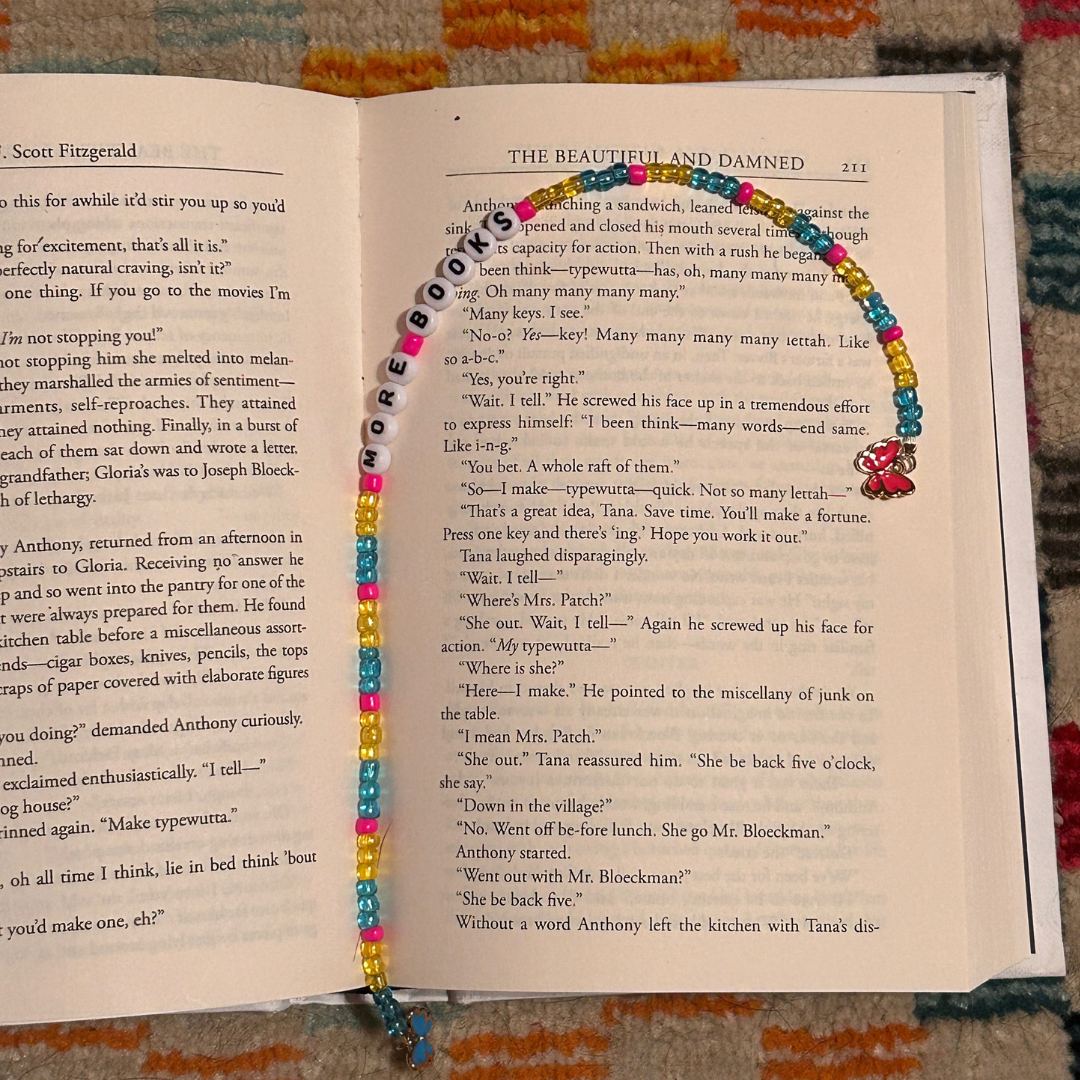 . Scott Fitzgerald
o this for awhile it’d stir you up so you’d
ng for excitement, that’s all it is.”
perfectly natural craving, isn’t it?”
one thing. If you go to the movies I’m
I’m not stopping you!”
not stopping him she melted into melan-
they marshalled the armies of sentiment—
arments, self-reproaches. They attained
hey attained nothing. Finally, in a burst of
each of them sat down and wrote a letter.
grandfather; Gloria’s was to Joseph Bloeck-
h of lethargy.
y Anthony, returned from an afternoon in
pstairs to Gloria. Receiving no answer he
p and so went into the pantry for one of the
t were always prepared for them. He found
kitchen table before a miscellaneous assort-
ends—cigar boxes, knives, pencils, the tops
craps of paper covered with elaborate figures
you doing?” demanded Anthony curiously.
nned.
exclaimed enthusiastically. “I tell—”
og house?”
rinned again. “Make typewutta.”
, oh all time I think, lie in bed think ’bout
t you’d make one, eh?”
MORE BOOKS
THE BEAUTIFUL AND DAMNED 211
nching a sandwich, leaned against the
sink. opened and closed his mouth several though
ts capacity for action. Then with a rush he began
been think—typewutta—has, oh, many many many
ing. Oh many many many many.”
“Many keys. I see.”
“No-o? Yes—key! Many many many many lettah. Like
so a-b-c.”
“Yes, you’re right.”
“Wait. I tell.” He screwed his face up in a tremendous effort
to express himself: “I been think—many words—end same.
Like i-n-g.”
“You bet. A whole raft of them.”
“So—I make—typewutta—quick. Not so many lettah—”
“That’s a great idea, Tana. Save time. You’ll make a fortune.
Press one key and there’s ‘ing.’ Hope you work it out.”
Tana laughed disparagingly.
“Wait. I tell—”
“Where’s Mrs. Patch?”
“She out. Wait, I tell—” Again he screwed up his face for
action. “My typewutta—”
“Where is she?”
“Here—I make.” He pointed to the miscellany of junk on
the table.
“I mean Mrs. Patch.”
“She out.” Tana reassured him. “She be back five o’clock,
she say.”
“Down in the village?”
“No. Went off be-fore lunch. She go Mr. Bloeckman.”
Anthony started.
“Went out with Mr. Bloeckman?”
“She be back five.”
Without a word Anthony left the kitchen with Tana’s dis-